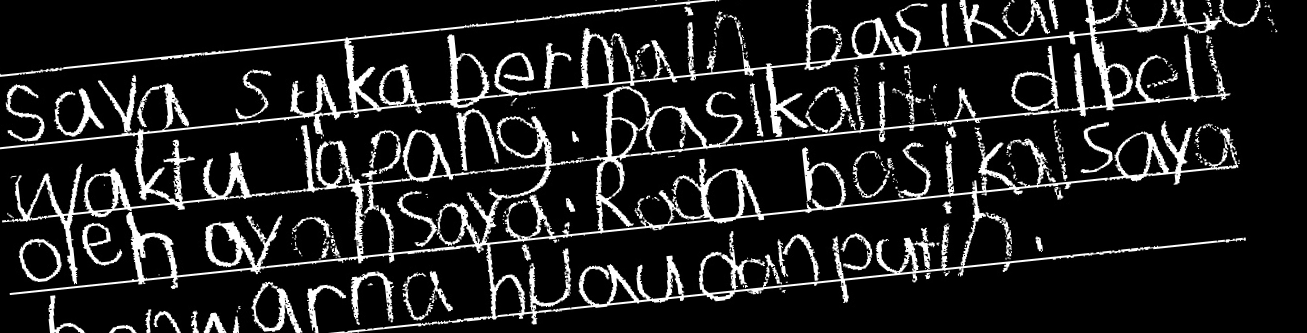 saya suka bermain basikal pada
waktu lapang. Basikal itu dibeli
oleh ayah saya. Roda basikal saya
berwarna hijau dan putih.